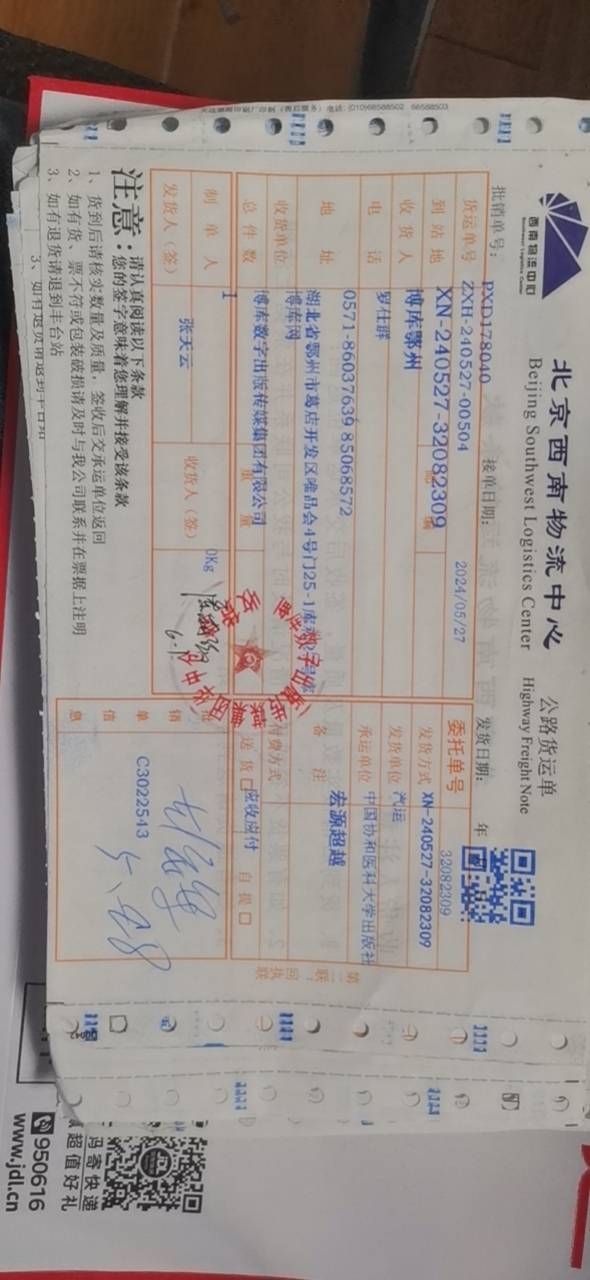 西南物流中心
Southwest Logistics Center
北京西南物流中心
Beijing Southwest Logistics Center
公路货运单
Highway Freight Note
批销单号：
PXD178040
接单日期：
2024/05/27
发货日期：
年
货运单号
ZXH-240527-00504
委托单号
32082309
到站地
XN-240527-32082309
发货方式
XN-240527-32082309
收货人
博库鄂州
发货单位
汽运
电话
罗仕群
承运单位
中国协和医科大学出版社
0571-86037639 85068572
备注
宏源超越
地址
湖北省鄂州市葛店开发区唯品会4号门25-1库
收货单位
博库网
付费方式
应收应付
总件数
博库数字出版传媒集团有限公司
重量
送货
自提
1
0Kg
制单人
张天云
收货人（签）
发货人（签）
批销单信息
C3022543
5、28
6-1
第二联：回执联
注意：
请认真阅读以下条款
您的签字意味着您理解并接受该条款
1、货到后请核实数量及质量，签收后交承运单位返回
2、如有货、票不符或包装破损请及时与我公司联系并在票据上注明
3、如有退货请退到丰台站
3、如有退货请退到丰台站
电话：(010)68588502 68588503
950616
www.jdl.cn
扫码寄快递
超值好礼